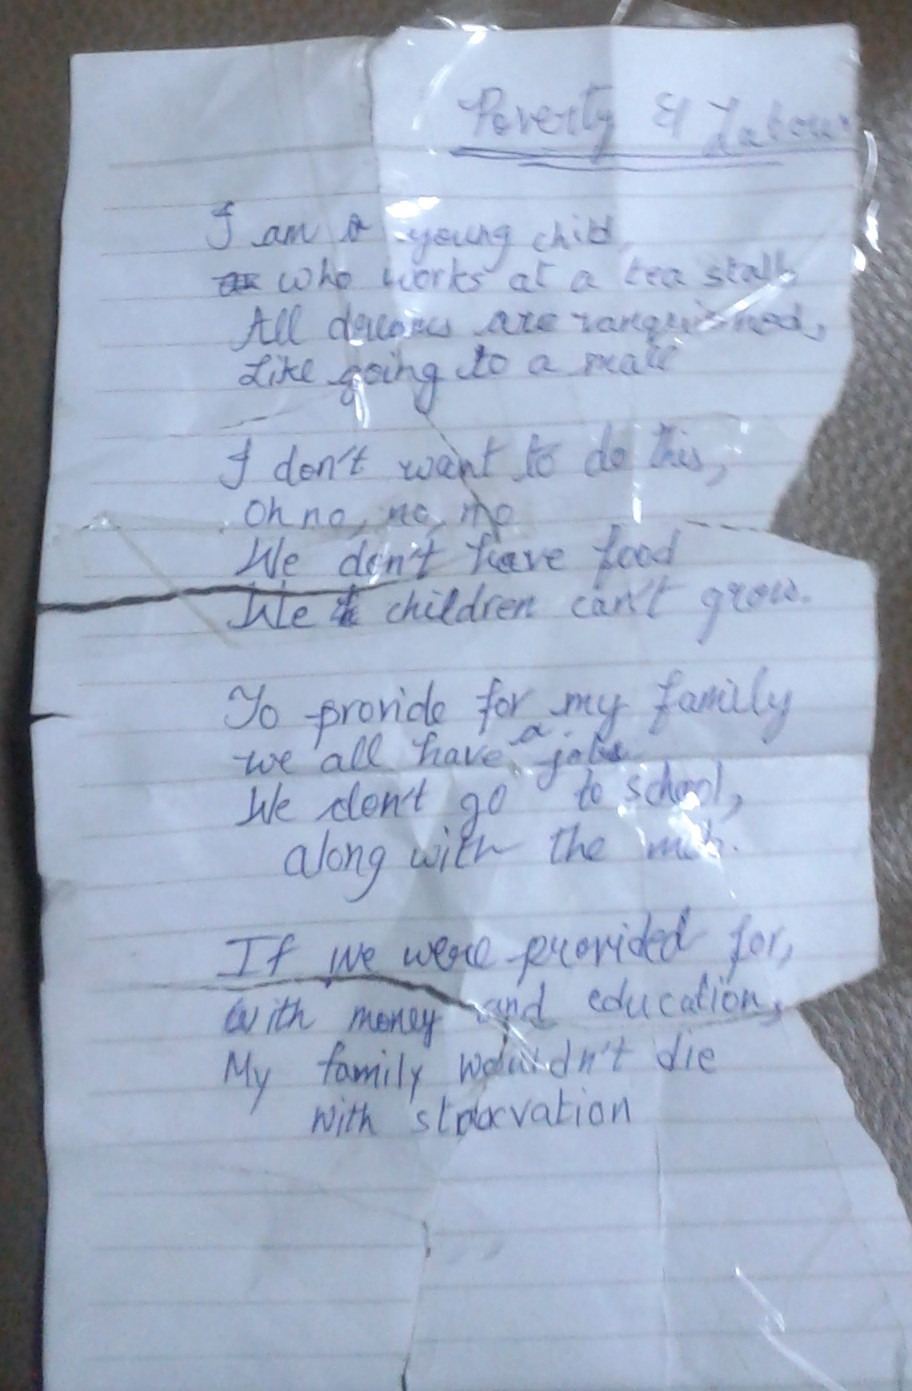 Poverty & Labour
I am a young child
who works at a tea stall,
All dreams are vanquished,
Like going to a mall
I don't want to do this,
Oh no, no, no
We don't have food
We children can't grow.
To provide for my family
we all have a job
We don't go to school,
along with the mob.
If we were provided for,
With money and education,
My family wouldn't die
with starvation